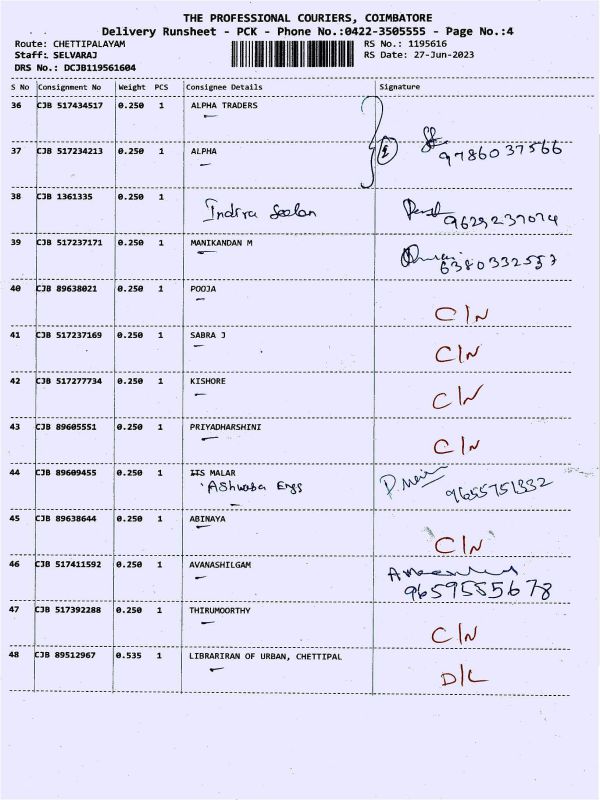 THE PROFESSIONAL COURIERS, COIMBATORE
Delivery Runsheet - PCK - Phone No.:0422-3505555 - Page No.:4
Route: CHETTIPALAYAM RS No.: 1195616
Staff: SELVARAJ RS Date: 27-Jun-2023
DRS No.: DCJB119561604
S No Consignment No Weight PCS Consignee Details Signature
36 CJB 517434517 0.250 1 ALPHA TRADERS
37 CJB 517234213 0.250 1 ALPHA 9786037566
38 CJB 1361335 0.250 1 Indira Seelan 9629237074
39 CJB 517237171 0.250 1 MANIKANDAN M 6380332557
40 CJB 89638021 0.250 1 POOJA C/N
41 CJB 517237169 0.250 1 SABRA J C/N
42 CJB 517277734 0.250 1 KISHORE C/N
43 CJB 89605551 0.250 1 PRIYADHARSHINI C/N
44 CJB 89609455 0.250 1 ITS MALAR 9655751332
45 CJB 89638644 0.250 1 ABINAYA C/N
46 CJB 517411592 0.250 1 AVANASHILGAM 9659555678
47 CJB 517392288 0.250 1 THIRUMOORTHY C/N
48 CJB 89512967 0.535 1 LIBRARIRAN OF URBAN, CHETTIPAL D/L